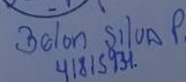 Belon Silva P.
41815931.